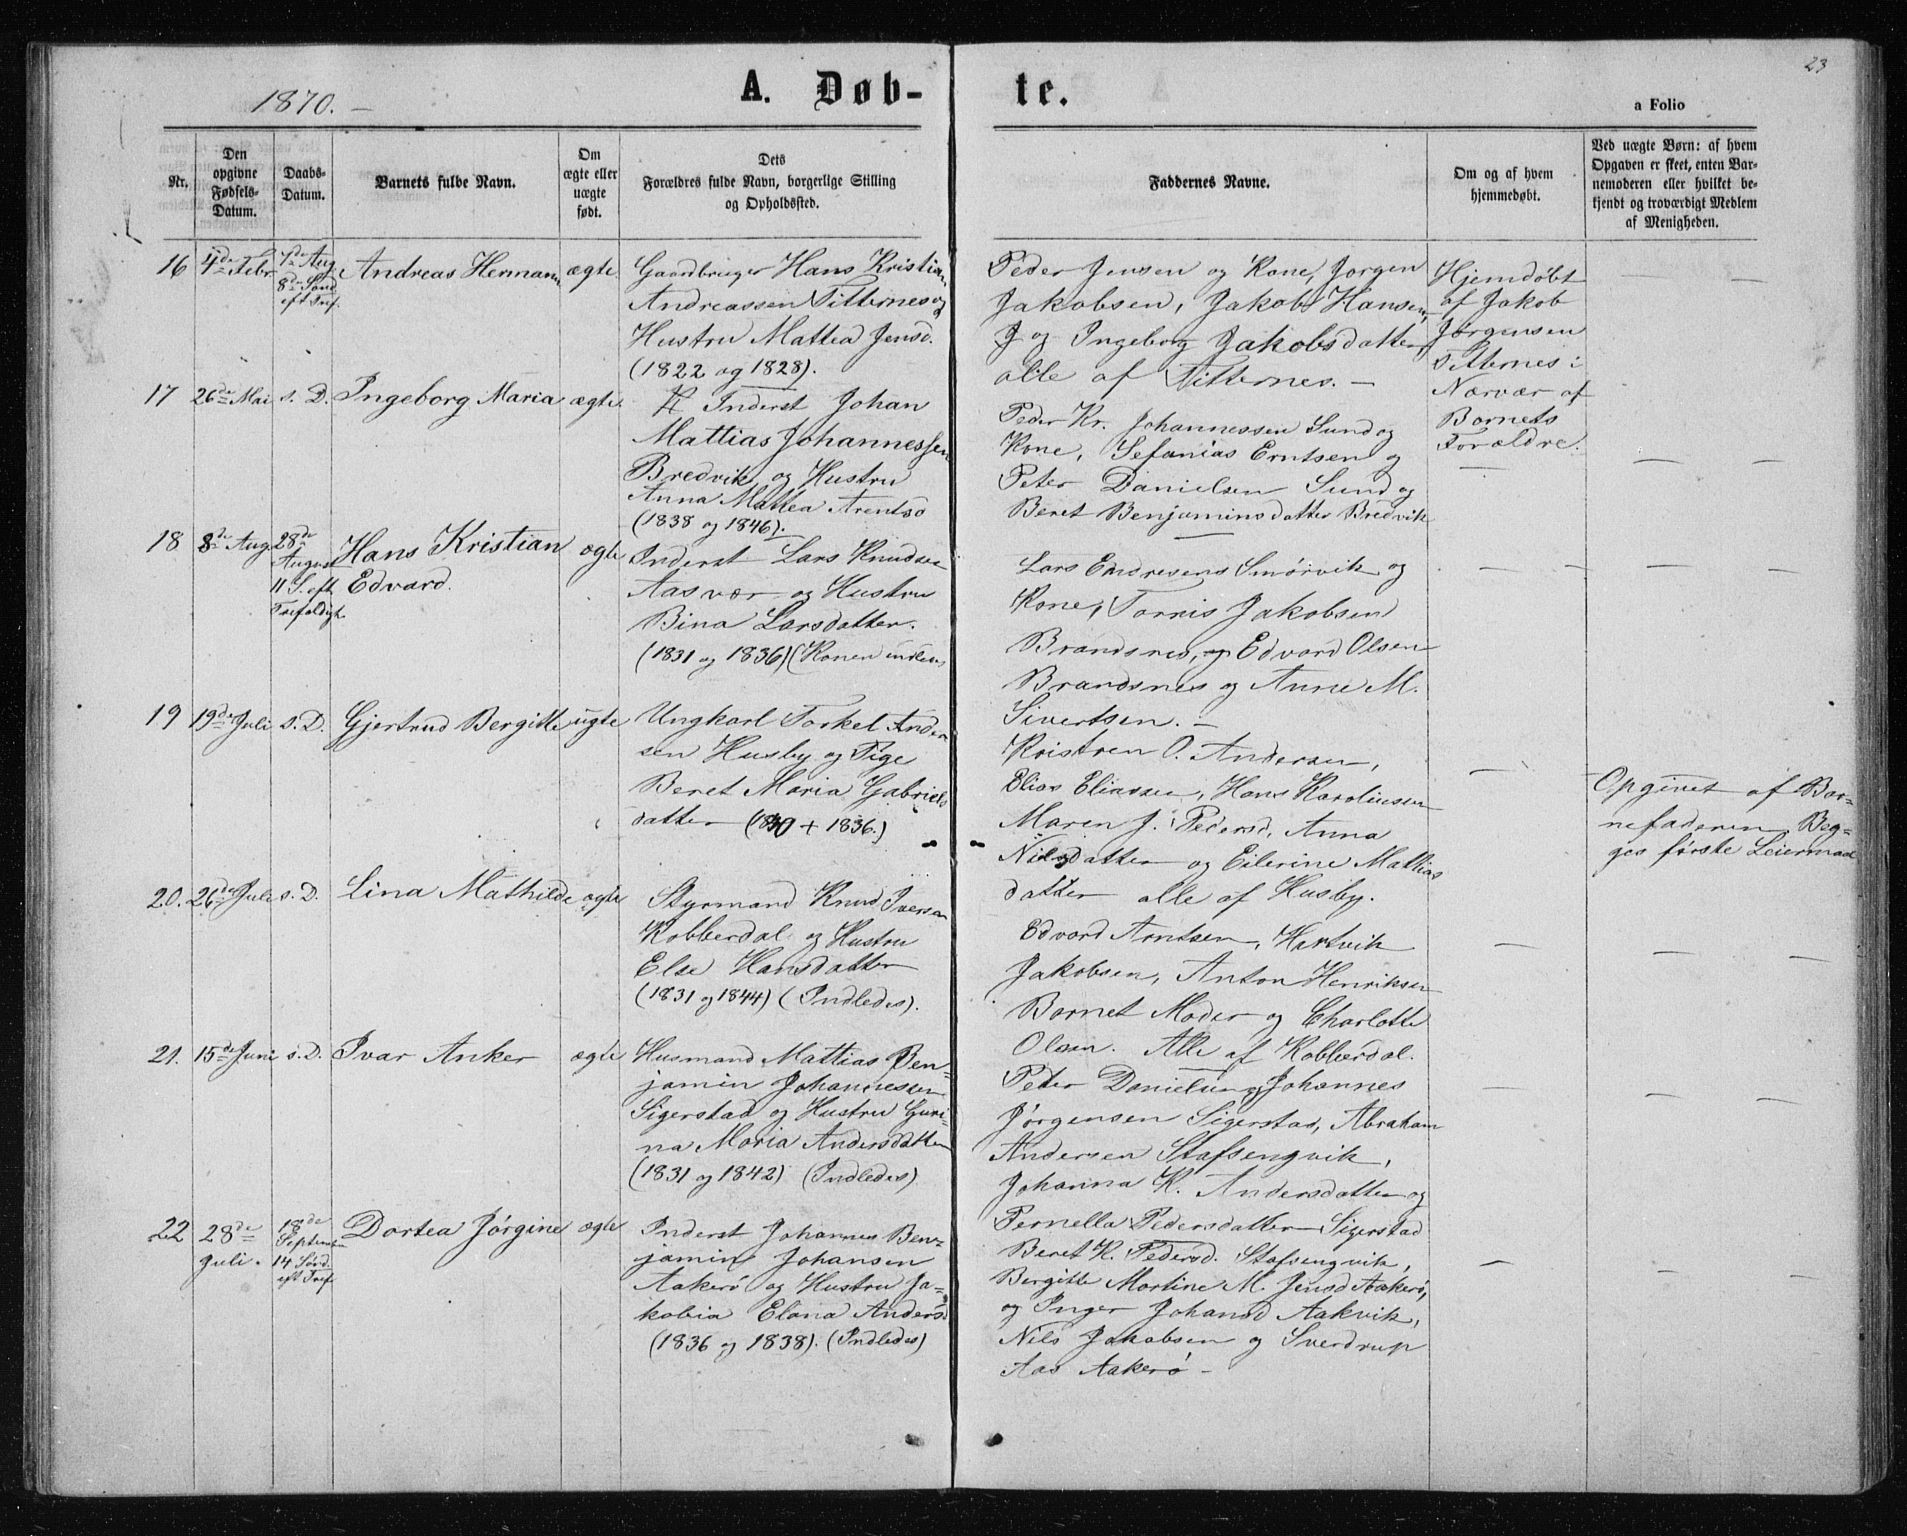 23
1870. –
A. Døb-
te.
a Folio
Nr.
Den
opgivne
Fødsels-
Datum.
Daabs-
Datum.
Barnets fulde Navn.
Om
ægte eller
uægte
født.
Dets
Forældres fulde Navn, borgerlige Stilling
og Opholdssted.
Faddernes Navne.
Om og af hvem
hjemmedøbt.
Ved uægte Børn: af hvem
Opgaven er skeet, enten Bar-
nemoderen eller hvilket be-
kjendt og troværdigt Medlem
af Menigheden.
16
4de Febr
7de Aug
8de Sønd
eft Tref.
Andreas Hermann
ægte
Gaardbruger Hans Kristian
Andreassen Titternes og
Hustru Mattea Jensd.
(1822 og 1828).
Peder Jensen og Kone, Jørgen
Jakobsen, Jakob Hansen,
J og Ingeborg Jakobsdatter
alle af Titternes. –
Hjemdøbt
af Jakob
Jørgensen
Titternes i
Nærvær af
Barnets
Forældre.
17
26de Mai
s. D.
Ingeborg Maria
ægte
Inderst Johan
Mattias Johannessen
Bredvik og Hustru
Anna Mattea Arentsd
(1838 og 1846).
Peder Kr. Johannessen Sund og
Kone, Sefanias Erntsen og
Peter Danielsen Sund og
Beret Benjaminsdatter Bredvik
18
8de Aug.
28de
August
11 S. eft
Trefoldigh
Hans Kristian
Edvard.
ægte
Inderst Lars Knudsen
Aasvær og Hustru
Bina Larsdatter.
(1831 og 1836) (Konen indleds
Lars Endresens Smørvik og
Kone, Torris Jakobsen
Brandsnes, og Edvard Olsen
Brandsnes og Anne M.
Sivertsen. –
19
19de Juli
s. D.
Gjertrud Bergitte
ugte
Ungkarl Torkel Ander
sen Husby og Pige
Beret Maria Gabriels
datter (1840 + 1836.)
Kristren O. Andersen,
Elias Eliassen, Hans Karoliussen
Maren J. Pedersd, Anna
Nilsdatter og Eilerine Mattias
datter alle af Husby.
Opgivet af Bar-
nefaderen Beg-
ges første Leiermaal
20.
26de Juli
s. D.
Lina Mathilde
ægte
Styrmand Knud Iversen
Kobberdal og Hustru
Else Hansdatter
(1831 og 1844) (Indledes).
Edvard Arntsen, Hartvik
Jakobsen, Anton Henriksen
Barnet Moder og Charlotte
Olsen. Alle af Kobberdal.
21.
15de Juni
s. D.
Ivar Anker
ægte
Husmand Mattias Ben-
jamin Johannessen
Sigerstad og Hustru Guri-
na Maria Andersdatter
(1831 og 1842) (Indledes)
Peter Danielsen og Johannes
Jørgensen Sigerstad, Abraham
Andersen Stafsengvik,
Johanna K. Andersdatter og
Pernella Pedersdatter Sigerstad
22
28de
Juli.
18de
September
14 Sønd.
eft Tref
Dortea Jørgine
ægte
Inderst Johannes Ben-
jamin Johansen
Aakerø og Hustru Ja-
kobia Elana Andersd
(1836 og 1838). (Indledes)
Beret K. Pedersd. Stafsengvik,
Bergitte Martine M. Jensd Aakerø,
og Inger Johansd Aakvik,
Nils Jakobsen og Sverdrup
Aas Aakerø –